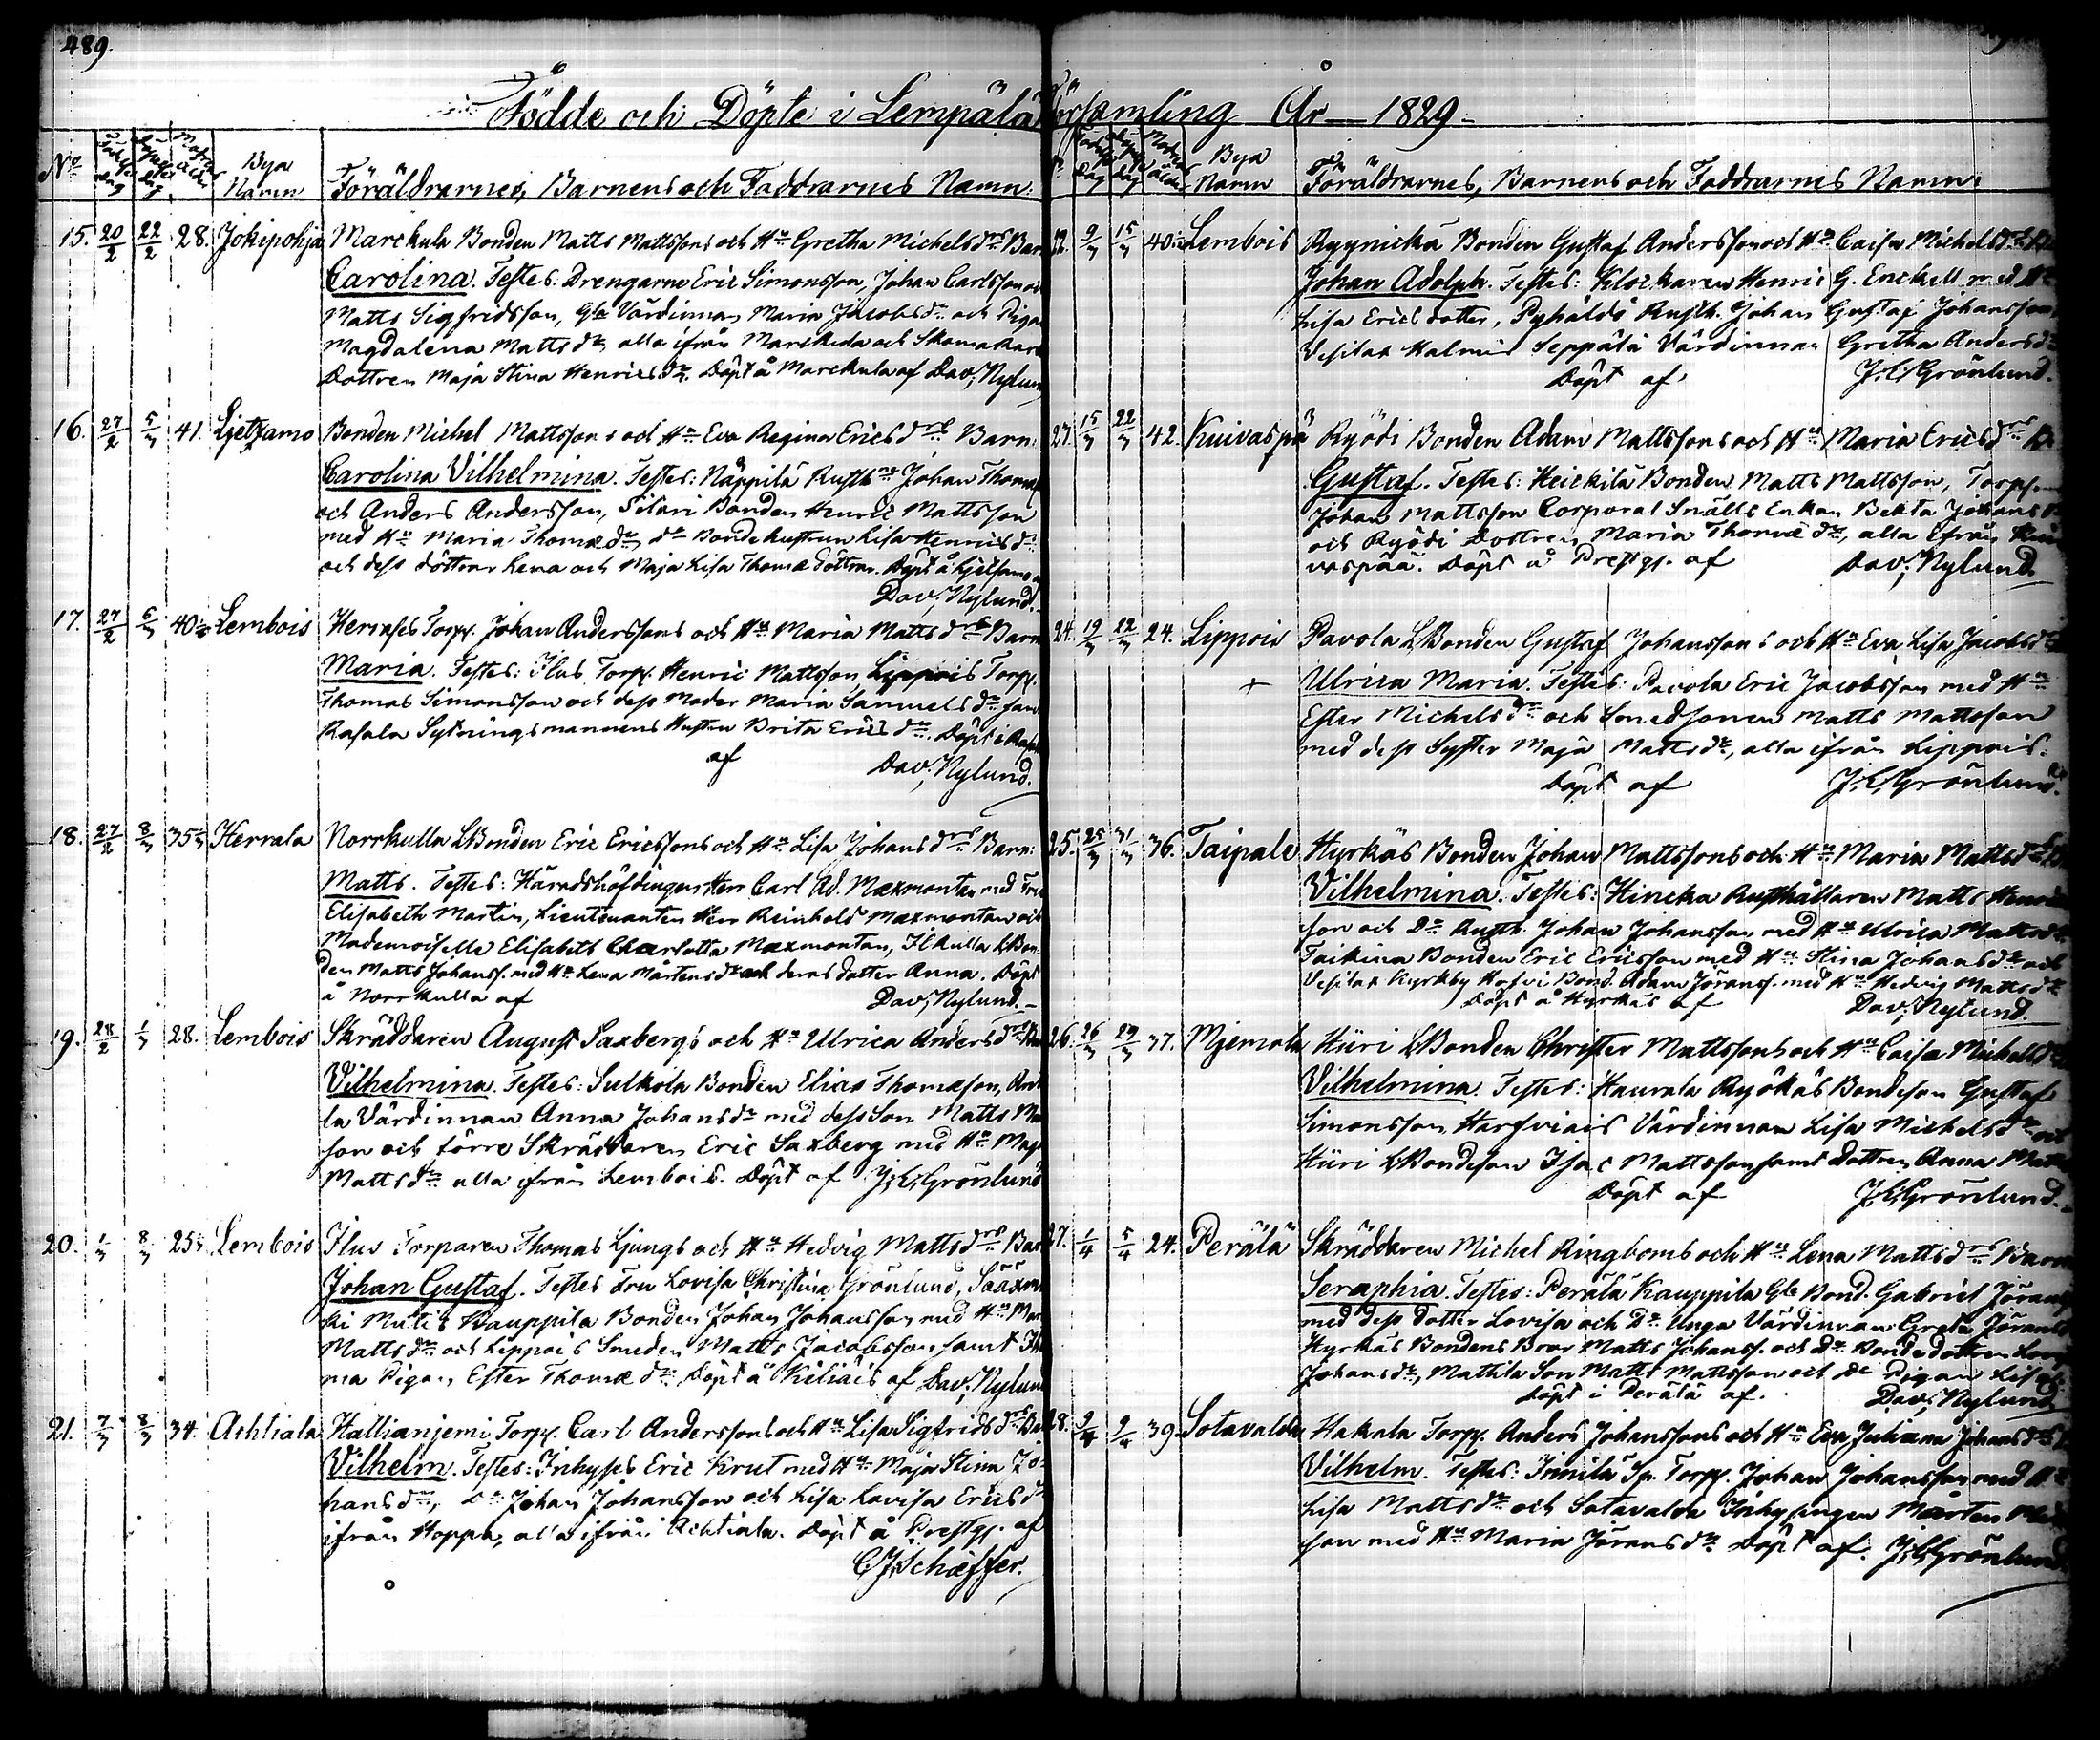 489.
Födde och Döpte i Lempälä Församling År 1829.
No Bya Namn Föräldrarnes, Barnens och Faddrarnes Namn.
15. 20/2 22/2 28. Jokipohja Marckula Bonden Matts Mattssons och Hu Gretha Michelsdrs Barn
Carolina. Testes: Drengarne Eric Simonsson, Johan Carlsson och
Matts Sigfridsson, Gla Värdinnan Maria Jacobsdr och Pigan
Magdalena Mattsdr, alla ifrån Marckula och Skomakare
Dottren Maja Stina Henricsdr. Döpt å Marckula af Dav; Nylund
16. 27/2 5/3 41. Ljetzamo Bonden Michel Mattssons och Hu Eva Regina Ericsdrs Barn:
Carolina Vilhelmina. Testes: Näppilä Rusth. Johan Thomas
och Anders Andersson, Silari Bonden Henric Mattsson
med Hu Maria Thomædr, do Bondehustrun Lisa Henricsdr
och dess döttrar Lena och Maja Lisa Thomæ döttrar. Döpt å Ljetsamo af
Dav; Nylund.
17. 27/2 6/3 40 Lembois Herrases Torp. Johan Anderssons och Hu Maria Mattsdrs Barn
Maria. Testes: Ilus Torp. Henric Mattsson Lippois Torp.
Thomas Simonsson och dess Moder Maria Samuelsdr samt
Rasala Sytningsmannens Hustru Brita Ericsdr. Döpt i
af Dav; Nylund.
18. 27/2 8/3 35 Herrala Norrkulla LBonden Eric Ericssons och Hu Lisa Johansdrs Barn:
Matts. Testes: Häradshöfdingen Herr Carl Ad. Mæxmontan med Fru
Elisabeth Martin, Lieutenanten Herr Reinhold Mæxmontan och
Mademoiselle Elisabeth Charlotta Mæxmontan, Ilkulla LBon-
den Matts Johanss. med Hu Lena Mårtensdr och deras dotter Anna. Döpt
å Norrkulla af Dav; Nylund.
19. 28/2 1/3 28. Lembois Skräddaren August Saxbergs och Hu Ulrica Andersdrs Barn
Vilhelmina. Testes: Sulkola Bonden Elias Thomæson,
la Värdinnan Anna Johansdr med dess Son Matts
son och förre Skräddaren Eric Saxberg med Hu Maja
Mattsdr alla ifrån Lembois. Döpt af J.E. Grönlund
20. 1/3 8/3 25 Lembois Ilus Torparen Thomas Ljungs och Hu Hedvig Mattsdrs Barn
Johan Gustaf. Testes Fru Lovisa Christina Grönlund, Sääxmä
ki Kauppila Bonden Johan Johansson med Hu
Mattsdr och Lippois Smeden Matts Jacobsson samt
ma Pigan Ester Thomædr. Döpt å Kiliäis af Dav; Nylund
21. 7/3 8/3 34. Achtiala Hallianjemi Torp. Carl Anderssons och Hu Lisa Sigfridsdrs Barn
Vilhelm. Testes: Inhyses Eric Krut med Hu Maja Stina Jo-
hansdr, Do Johan Johansson och Lisa Lovisa Ericsdr
ifrån Hoppa, alla ifrån Achtiala. Döpt å Prestg. af
C.J. Schæffer.
Bya Namn Föräldrarnes, Barnens och Faddrarnes Namn.
22. 9/3 15/3 40 Lembois Ryynickä Bonden Gustaf Anderssons och Hu Caisa Michelsdrs
Johan Adolph. Testes: Klockaren Henric G. Enckell med Hu
Lisa Ericsdotter, Pyhäldö Rusth. Johan Gustaf Johansson
Vesilax Halmis Seppälä Värdinnan Gretha Andersdr
Döpt af J.E. Grönlund.
23. 15/3 22/3 42. Kuivaspä Ryödi Bonden Adam Mattssons och Hu Maria Ericsdrs
Gustaf. Testes: Heickilä Bonden Matts Mattsson, Torp.
Johan Mattsson Corporal Snälls Enkan Beata Johansdr
och Ryödi Dottren Maria Thomædr, alla ifrån Kui
vaspää. Döpt å Prestg. af Dav; Nylund.
24. 19/3 22/3 24. Lippois Pavola LBonden Gustaf Johanssons och Hu Eva Lisa Jacobsdrs
+ Ulrica Maria. Testes: Pavola Eric Jacobsson med Hu
Ester Michelsdr och Smedsonen Matts Mattsson
med dess Syster Maja Mattsdr, alla ifrån Lippois.
Döpt af J.E. Grönlund.
25. 25/3 31/3 36. Taipale Hyrkäs Bonden Johan Mattssons och Hu Maria Mattsdrs
Vilhelmina. Testes: Hincka Rusthållaren Matts Henrics
son och Do Rusth. Johan Johansson med Hu Ulrica Mattsdr
Taikina Bonden Eric Ericsson med Hu Stina Johansdr och
Vesilax Kyrkby Hofvi Bond. Adam Jöranss. med Hu Hedvig Mattsdr
Döpt å Hyrkäs af Dav; Nylund.
26. 26/3 29/3 37. Mjemola Hiiri LBonden Christer Mattssons och Hu Caisa Michelsdrs
Vilhelmina. Testes: Haurala Ryökäs Bondeson Gustaf
Simonsson, Harfviais Värdinnan Lisa Michelsdr och
Hiiri LBondeson Isac Mattsson samt dottren Anna
Döpt af J.E. Grönlund.
27. 1/4 5/4 24. Perälä Skräddaren Michel Ringboms och Hu Lena Mattsdrs Barn
Seraphia. Testes: Perälä Kauppila Gle Bond. Gabriel Jöranss
med dess dotter Lovisa och Do Unga Värdinnan Greta Jöransdr
Hyrkäs Bondens Bror Matts Johanss. och Do Bondedottren
Johansdr, Mattila Son Matts Mattsson och Do Pigan Lisa
Döpt i Perälä af. Dav; Nylund.
28. 2/4 9/4 39. Sotavalda Hakala Torp. Anders Johanssons och Hu Eva Juliana Johansdrs
Vilhelm. Testes: Innilä Torp. Johan Johansson med Hu
Lisa Mattsdr och Sotavalda Inhysingen Mårten
son med Hu Maria Jöransdr Döpt af. J.E. Grönlund